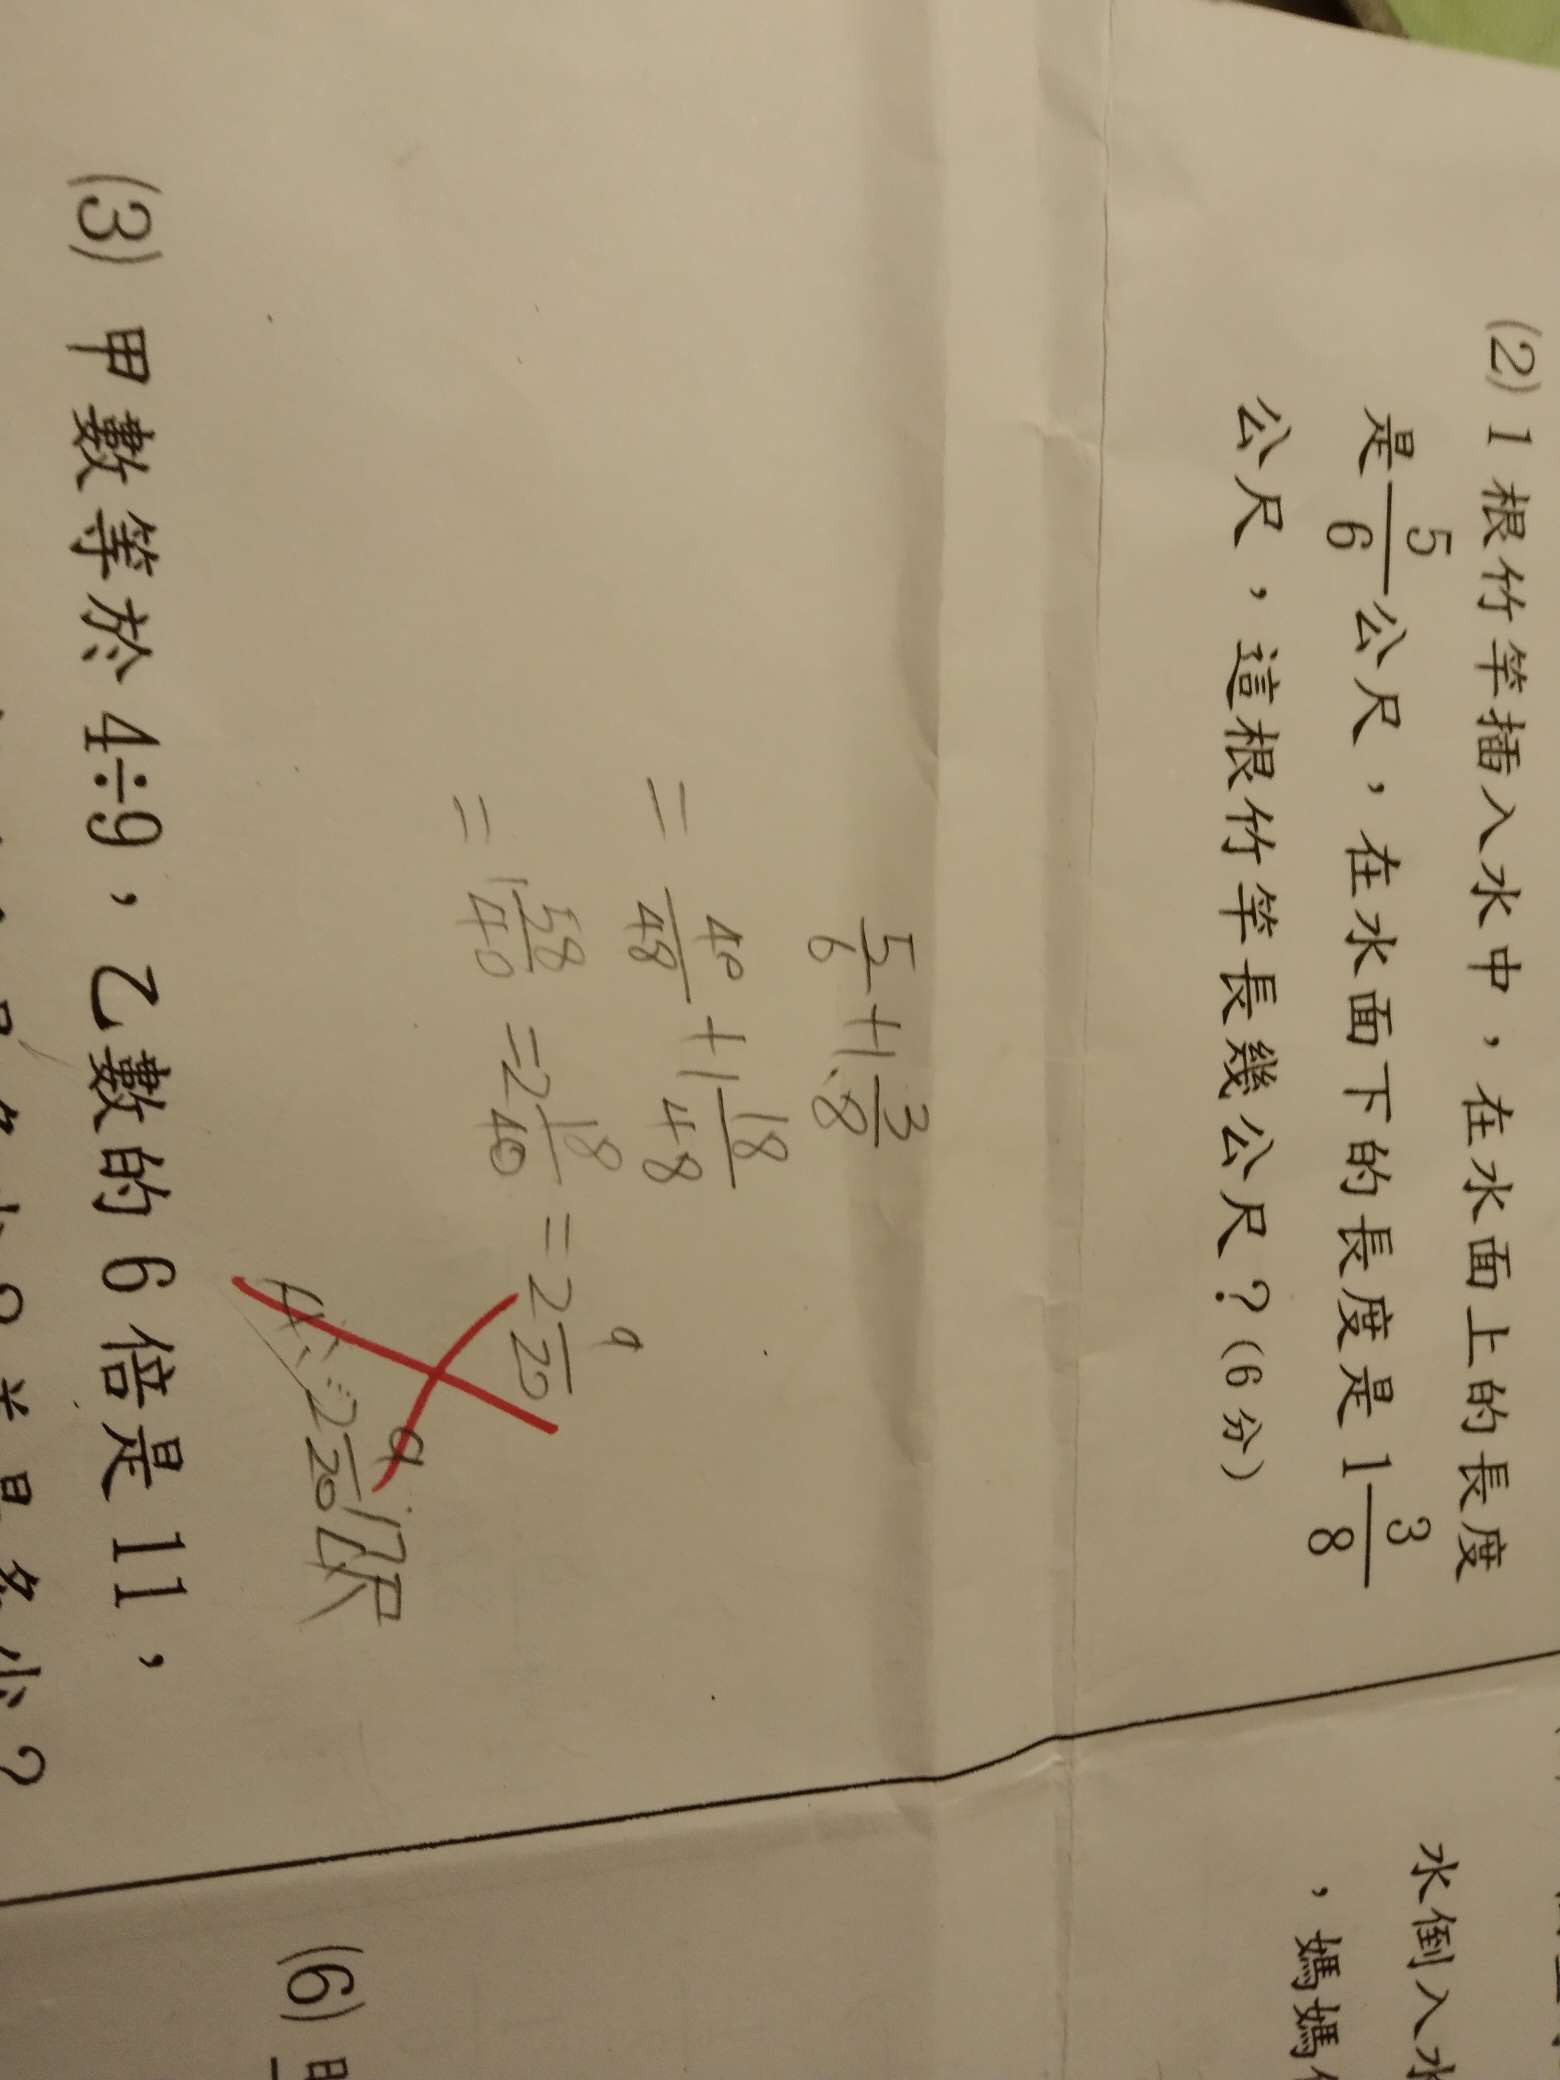 (2) 1根竹竿插入水中，在水面上的長度
是5/6公尺，在水面下的長度是1 3/8
公尺，這根竹竿長幾公尺？(6分)
5/6+1 3/8
=40/48+1 18/48
=1 58/40=2 18/40=2 9/20
A:2 9/20公尺
(3) 甲數等於4÷9，乙數的6倍是11，
水倒入水
，媽媽
(6)